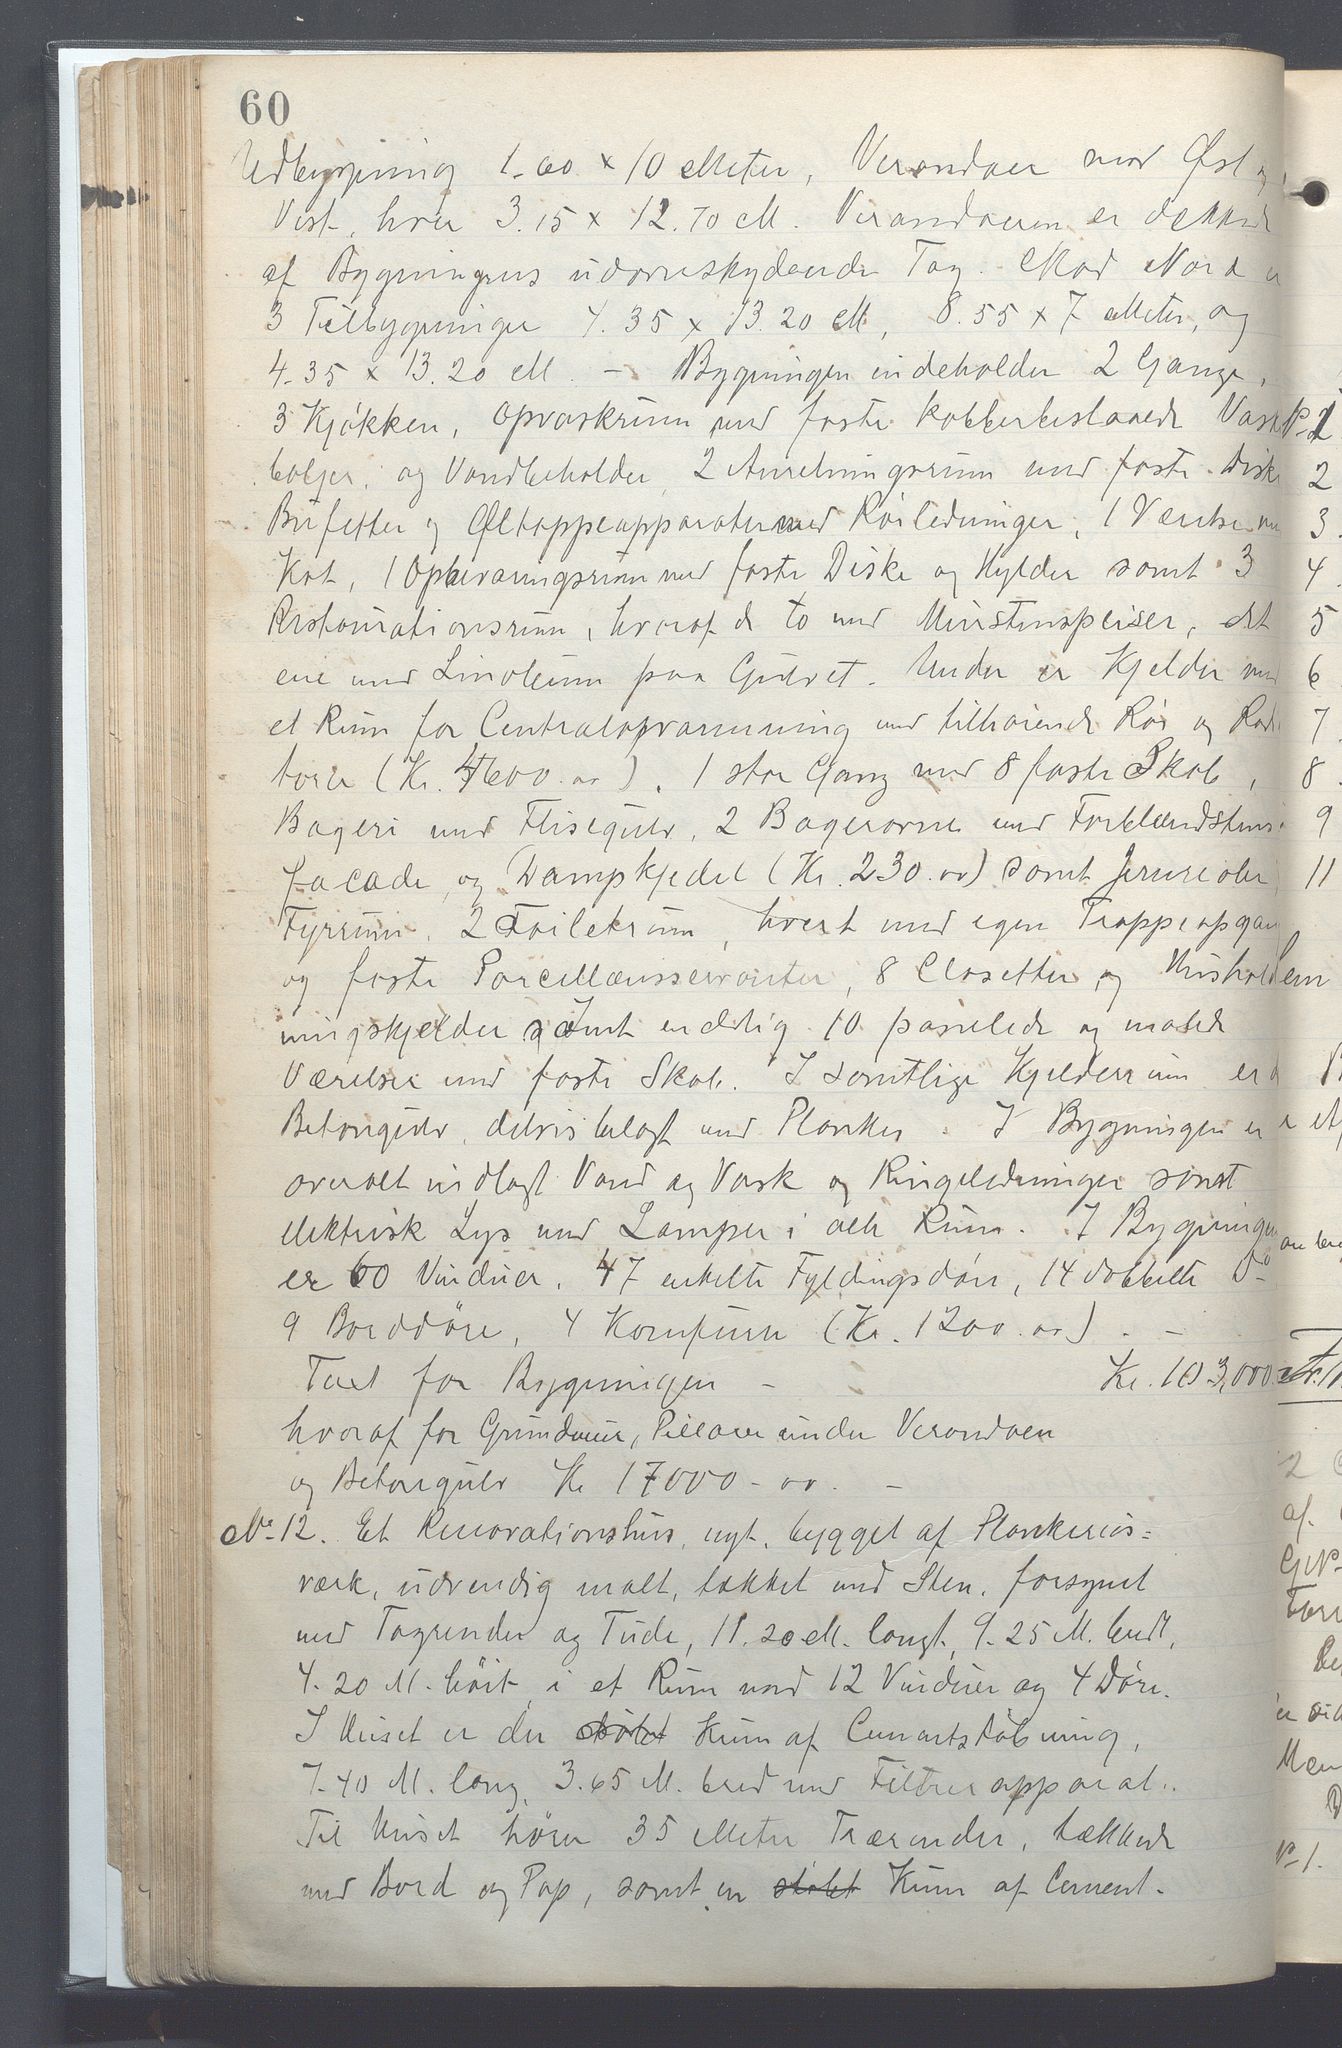 60
Udbygning 1.60 x 10 Meter, Verandaer mod Øst og
Vest, hver 3.15 x 12.70 M. Verandaerne er dækket
af Bygningens udoverskydende Tag. Mod Nord er
3 Tilbygninger 4.35 x 13.20 M, 8.55 x 7 Meter, og
4.35 x 13.20 M. – Bygningen indeholder 2 Gange,
3 Kjøkken, Opvaskrum med faste kobberbeslaaede Vaske
baljer, og Vandbeholder, 2 Anretningsrum med faste Diske
Buffetter og Øltappeapparater med Rørledninger, 1 Værelse med
Kot, 1 Opbevaringsrum med faste Diske og Hylder samt 3
Restaurationsrum, hvoraf de to med Murstenspeiser, det
ene med Linoleum paa Gulvet. Under er Kjelder med
et Rum for Centralopvarmning med tilhørende Rør og Radia
torer (Kr. 4600.00), 1 stor Gang med 8 faste Skab,
Bageri med Flisegulv, 2 Bagerovne med Forblændstens
facade, og Dampkjedel (Kr. 230.00) samt
Fyrrum, 2 Toiletrum, hvert med egen Trappeopgang
og faste Porcellænsservanter, 8 Closetter og Mushold
ningskjelder samt endelig 10 panelede og malede
Værelser med faste Skab. I samtlige Kjelderrum er der
Betongulv, delvis belagt med Planker. I Bygningen er
overalt indlagt Vand og Vask og Ringeledninger samt
elektrisk Lys med Lamper i alle Rum. I Bygningen
er 60 Vinduer, 47 enkelte Fyldingsdøre, 14 dobbelte Do
9 Borddøre, 4 Komfurer (Kr. 1200.00). –
Taxt for Bygningen – Kr. 103,000
hvoraf for Grundmur, Pillarer under Verandaen
og Betongulv Kr 17000-00. –
No 12. Et Renovationshus, nyt, bygget af Plankeriis=
værk, udvendig malt, tækket med Sten, forsynet
med Tagrender og Tude, 11.20 M. langt, 9.25 M. bredt,
4.20 M. høit, i et Rum med 12 Vinduer og 4 Døre.
I Huset er der støbt Kum af Cementstøbning,
7.40 M. lang, 3.65 M. bred med Filtrerapparat.
Til Huset hører 35 Meter Trærender, tækkede
med Bord og Pap, samt en støbt Kum af Cement-